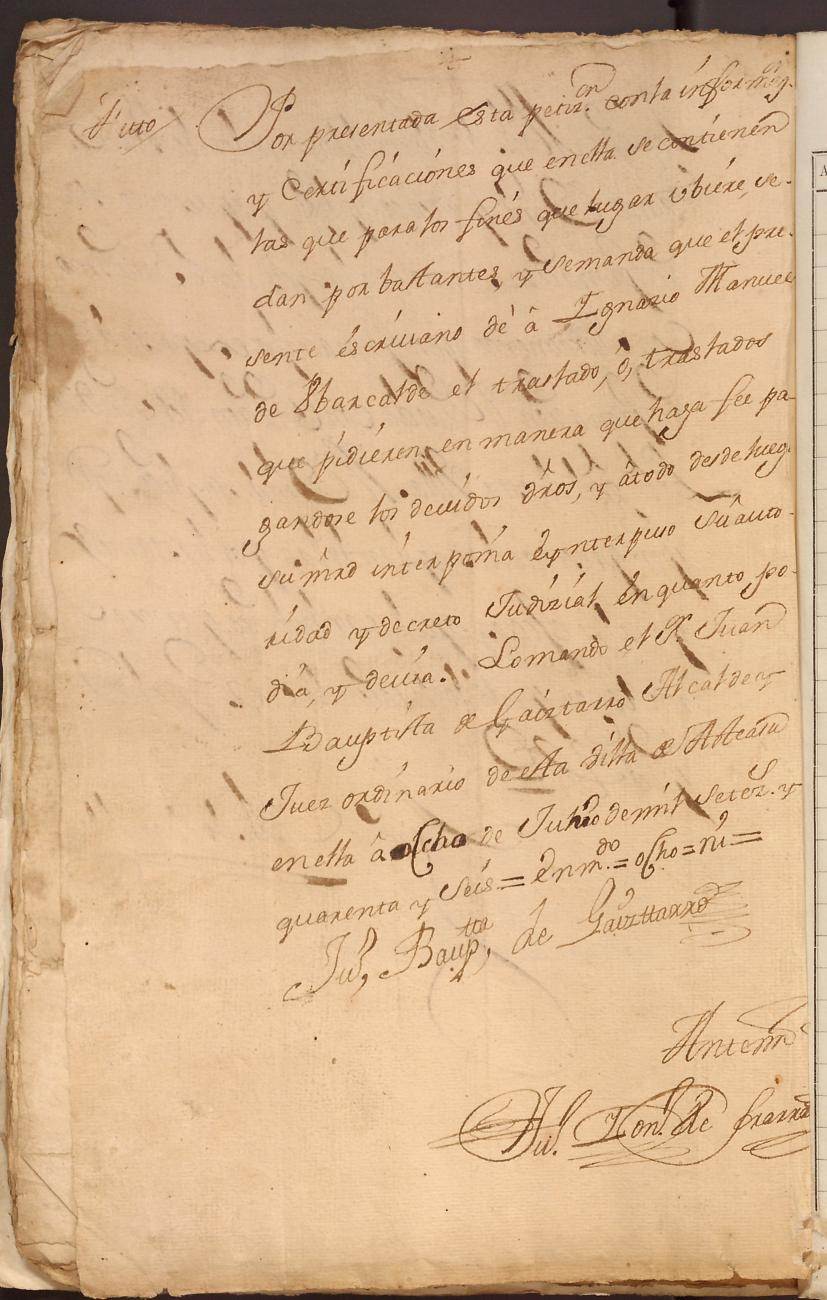 Auto Por presentada esta petiz.on con la informaz.on
y Certificaciónes que en ella se contienen
las que para los fines que lugar ubiére, se
dan por bastantes, y se manda que el pre-
sente éscriuano dé â Ignazio Manuel
de Abarcalde el traslado, ó, traslados
que pidiéren, en manera que haga fee pa-
gandose los deuidos dros, y â todo desde luego
su mrd interponia é ynterpuso su auto-
ridad y decreto Judizial, en quanto po-
dia, y deuia. Lo mando el S.r Juan
Bauptista de Gaiztarro Alcalde y
Juez ordinario de esta Villa de
en ella â ocho de Julio de mil setez.s y
quarenta y Seis = Enm.do = ocho = ni =
Ju.o Baup.tta de Gaizttarro
Antemi
Ju.o de